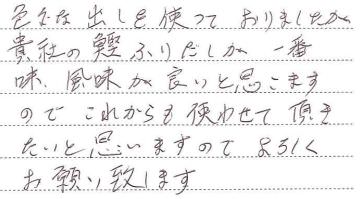 色々な出しを使って おりましたが
貴社の鰹ふりだしが 一番
味、風味が良いと思こます
のでこれからも使わせて頂き
たいと思いますのでよろしく
お願い致します